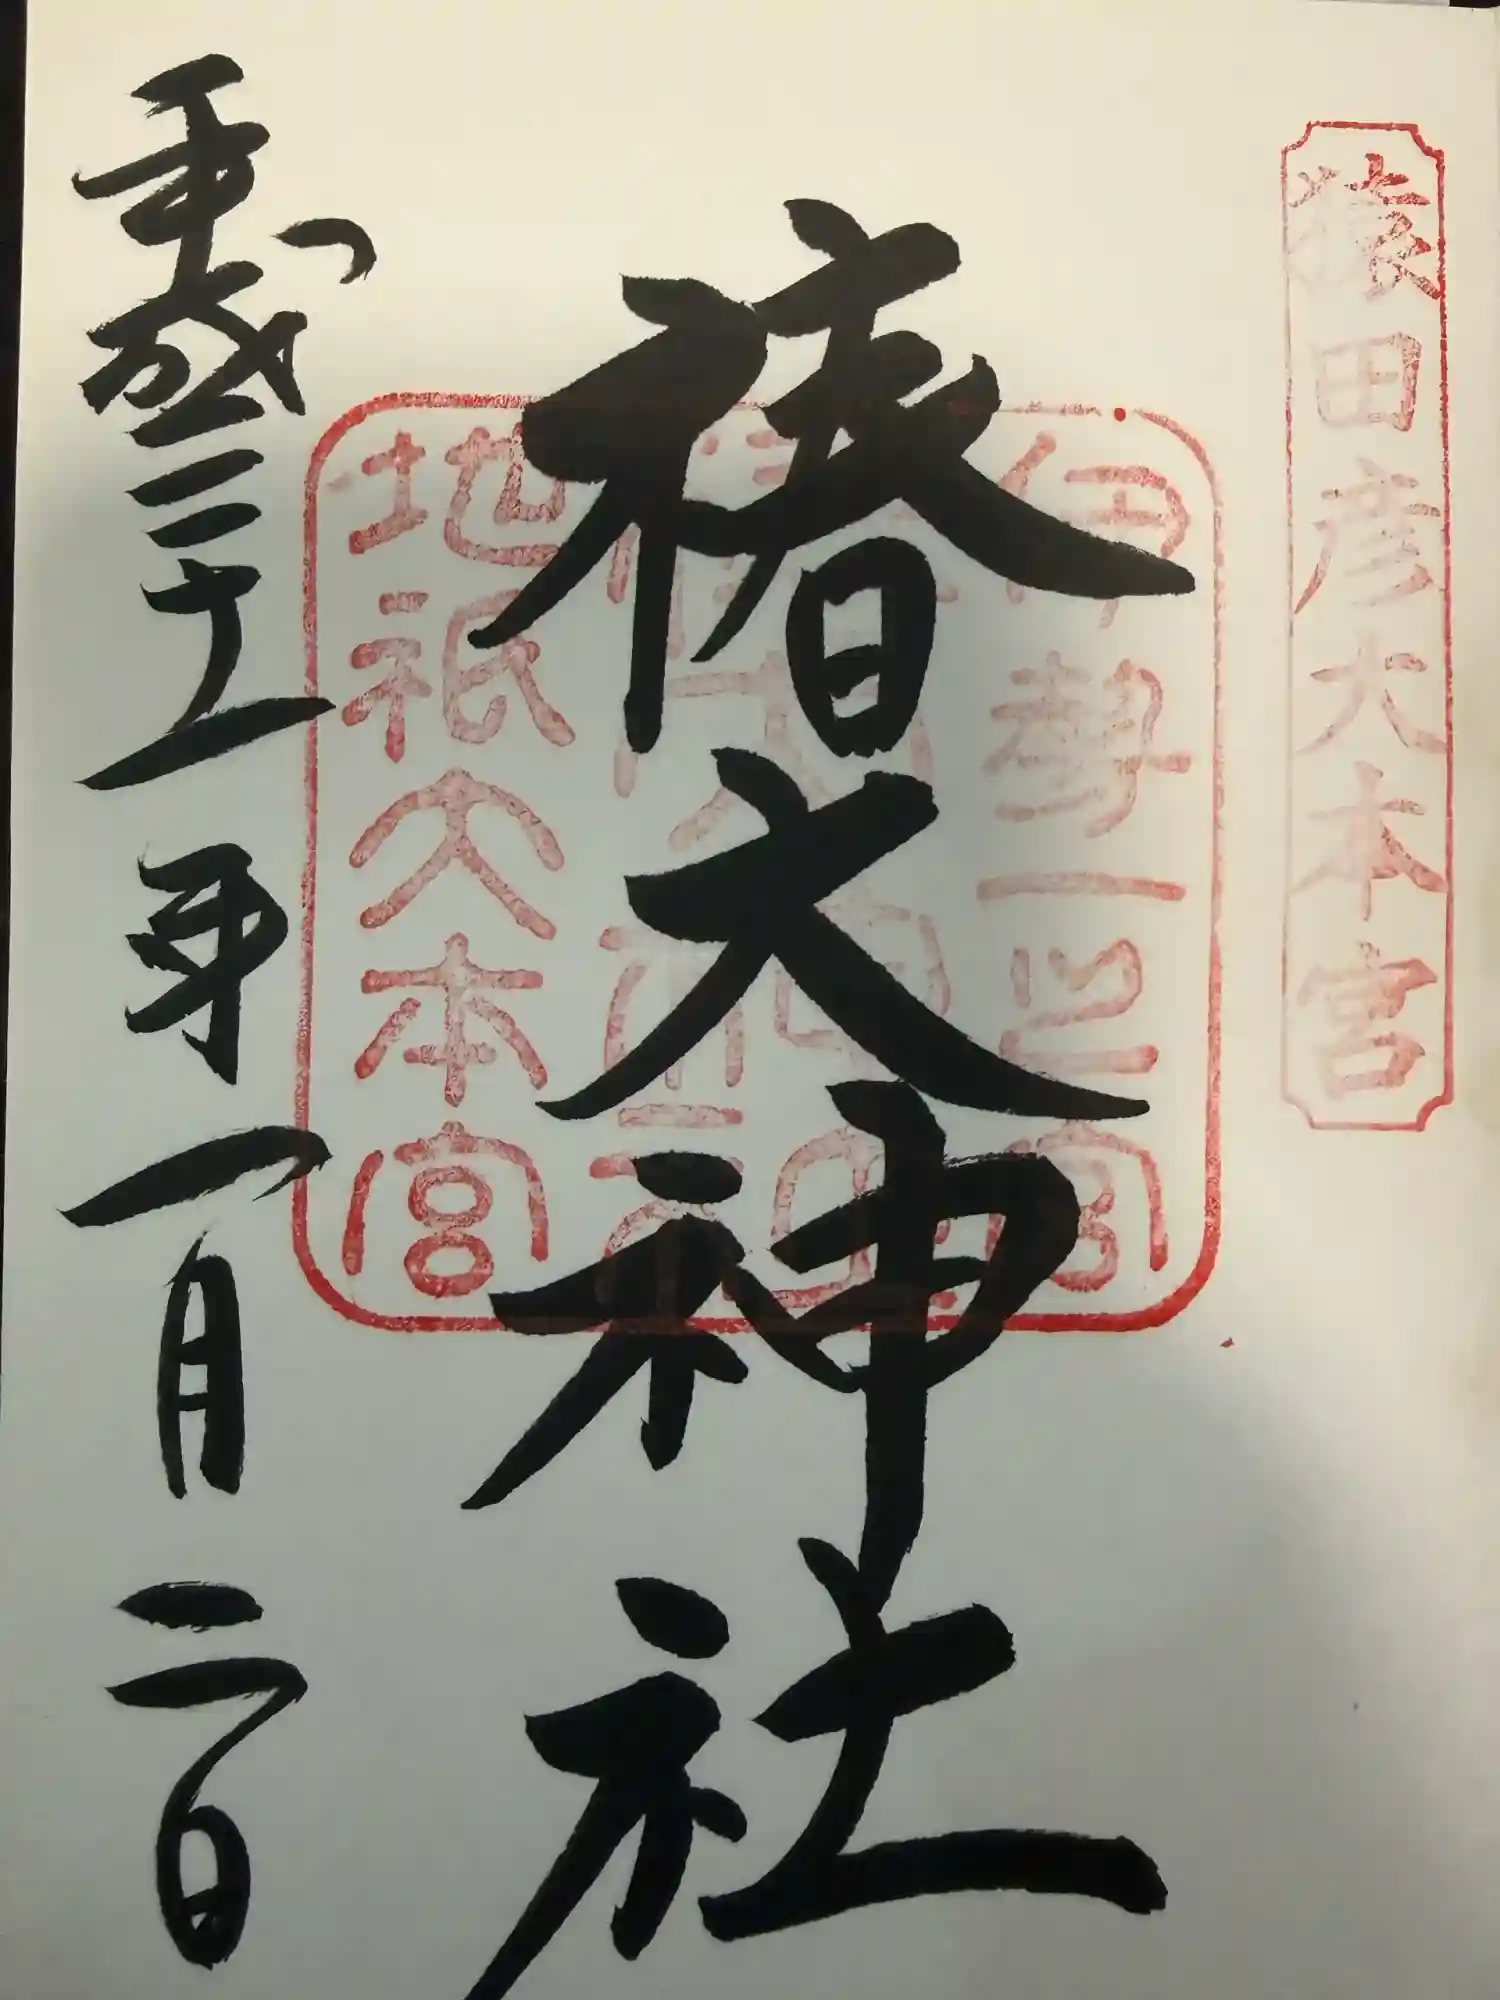 猿田彦大本宮
椿大神社
伊勢一之宮
地祇大本宮
平成三十一年一月二日